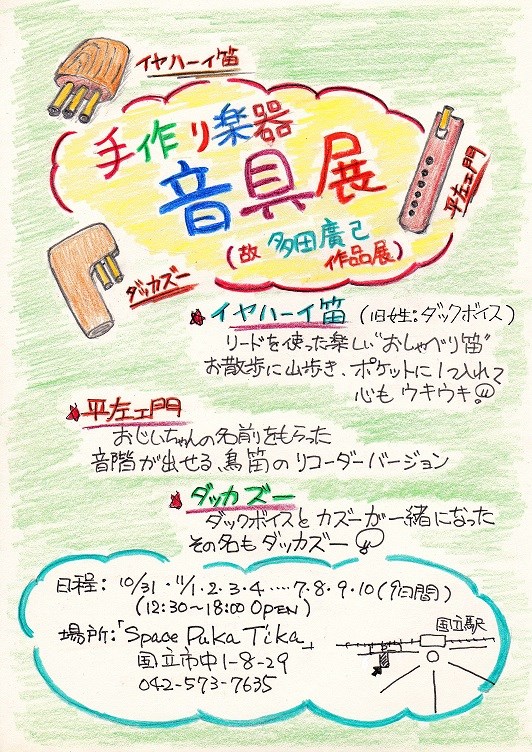 イヤハーイ笛
手作り楽器
音具展
(故 多田廣己
作品展)
平左ェ門
ダッカズー
イヤハーイ笛 (旧姓:ダックボイス)
リードを使った楽しい"おしゃべり笛"
お散歩に山歩き、ポケットに1つ入れて
心もウキウキ!
平左ェ門
おじいちゃんの名前をもらった
音階が出せる、鳥笛のリコーダーバージョン
ダッカズー
ダックボイスとカズーが一緒になった
その名もダッカズー
日程: 10/31・11/1・2・3・4……7・8・9・10(9日間)
(12:30〜18:00 OPEN)
場所:「Space Puka Tika」
国立市中1-8-29
042-573-7635
国立駅